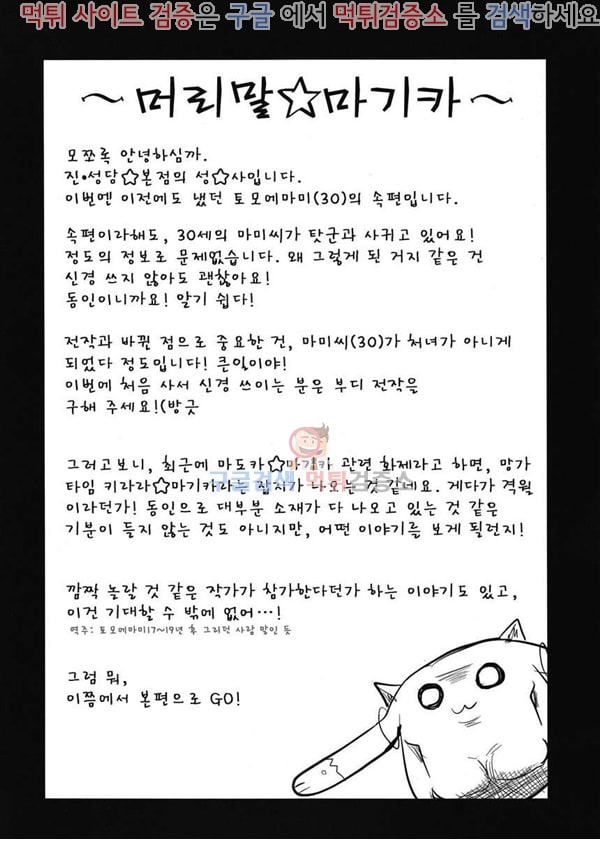 먹튀 사이트 검증은 구글 에서 먹튀검증소 를 검색하세요
~머리말☆마기카~
모쪼록 안녕하심까.
진•성당☆본점의 성☆사입니다.
이번엔 이전에도 냈던 토모에마미(30)의 속편입니다.
속편이라해도, 30세의 마미씨가 탓군과 사귀고 있어요!
정도의 정보로 문제없습니다. 왜 그렇게 된 거지 같은 건
신경 쓰지 않아도 괜찮아요!
동인이니까요! 알기 쉽다!
전작과 바뀐 점으로 중요한 건, 마미씨(30)가 처녀가 아니게
되었다 정도입니다! 큰일이야!
이번에 처음 사서 신경 쓰이는 분은 부디 전작을
구해 주세요!(방긋
그러고보니, 최근에 마도카☆마기카 관련 화제라고 하면, 망가
타임 키라라☆마기카라는 잡지가 나오는 것 같네요. 게다가 격월
이라던가! 동인으로 대부분 소재가 다 나오고 있는 것 같은
기분이 들지 않는 것도 아니지만, 어떤 이야기를 보게 될런지!
구글검색 먹튀검증소
깜짝 놀랄 것 같은 작가가 참가한다던가 하는 이야기도 있고,
이건 기대할 수 밖에 없어…!
역주: 토모에마미17~19년 후 그리던 사람 말인 듯
그럼 뭐,
이쯤에서 본편으로 GO!